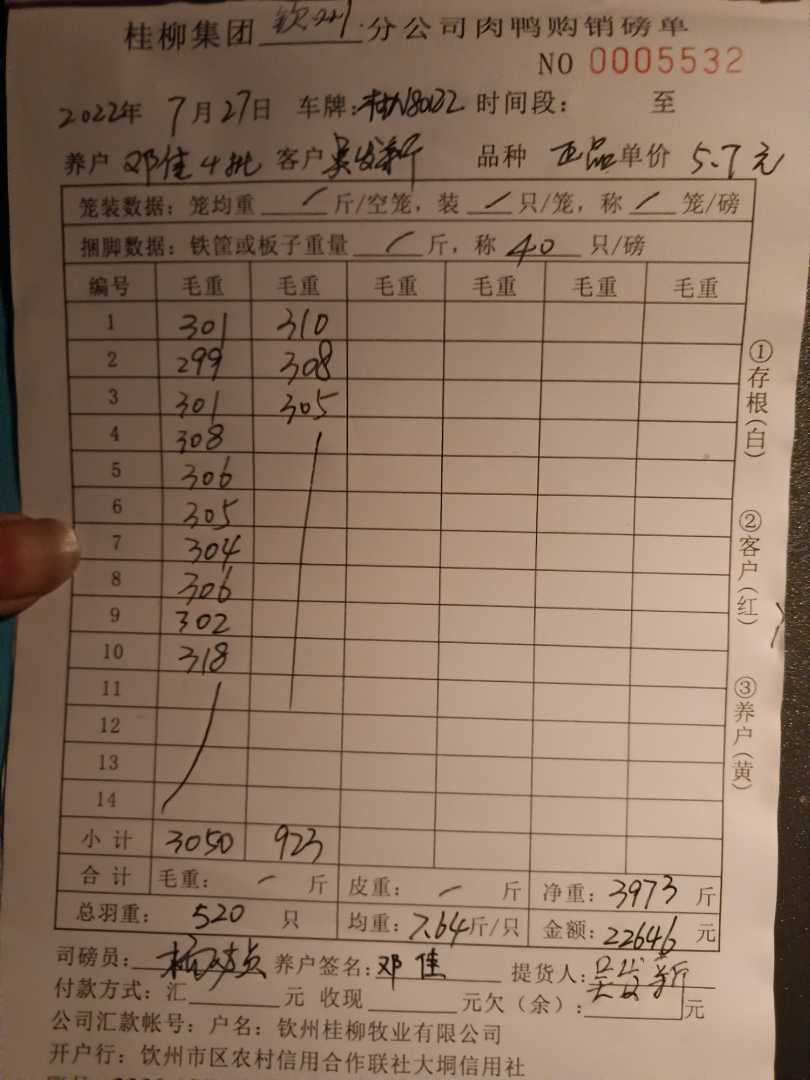 桂柳集团 钦州 分公司肉鸭购销磅单
NO 0005532
2022年 7月27日 车牌: 时间段: 至
养户 邓佳4批 客户 吴发新 品种 正品 单价 5.7元
笼装数据: 笼均重 / 斤/空笼, 装 / 只/笼, 称 / 笼/磅
捆脚数据: 铁筐或板子重量 / 斤, 称 40 只/磅
编号 毛重 毛重 毛重 毛重 毛重 毛重
1 301 310
2 299 308
3 301 305
4 308
5 306
6 305
7 304
8 306
9 302
10 318
11
12
13
14
小计 3050 923
合计 毛重: - 斤 皮重: - 斤 净重: 3973 斤
总羽重: 520 只 均重: 7.64斤/只 金额: 22646 元
司磅员: 养户签名: 邓佳 提货人: 吴发新
付款方式: 汇 元 收现 元欠(余): 元
公司汇款帐号: 户名: 钦州桂柳牧业有限公司
开户行: 钦州市区农村信用合作联社大垌信用社
①存根(白)
②客户(红)
③养户(黄)